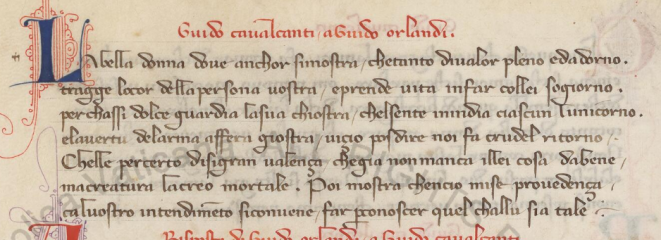 Guido caualcanti, a Guido orlandi.
LAbella donna doue anchor simostra, chetanto diualor pleno edadorno.
tragge locor della persona uostra, eprende uita infar collei sogiorno.
per chassi dolce guardia lasua chiostra, chelsente inindia ciascun lunicorno.
elauertu delarma affera giostra, uiço posdire noi fa crudel ritorno.
Chelle percerto disigran ualença, chegia nonmanca illei cosa dabene,
macreatura lacreo mortale. Poi mostra chencio mise prouedença,
caluostro intendimeto siconuene, far pconoscer quel challu sia tale.
Risposta di Guido orlandi, a Guido caualcanti